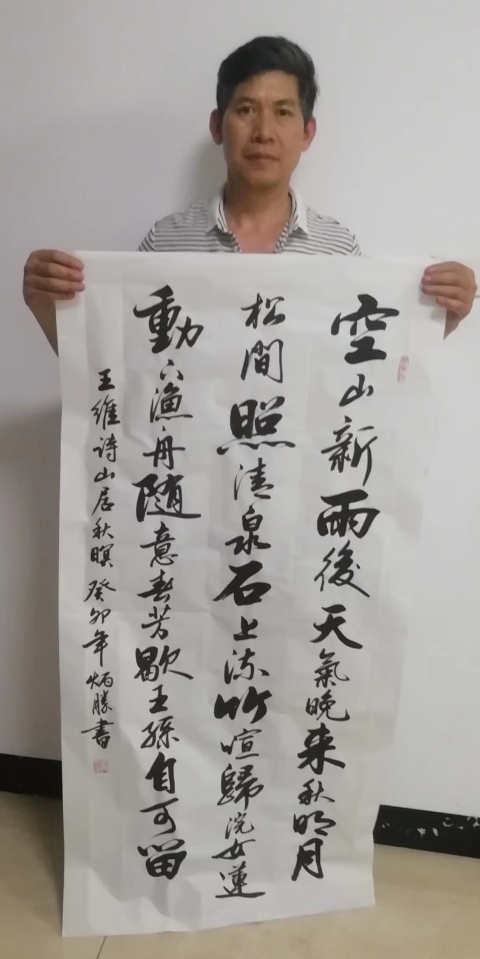 空山新雨後天氣晚来秋明月
松間照清泉石上流竹喧歸浣女蓮
動下漁舟随意春芳歇王孫自可留
王維诗山居秋暝癸卯年炳勝書